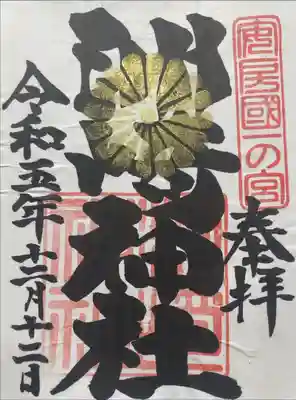 安房國一の宮
奉拝
洲崎神社
令和五年十二月十二日